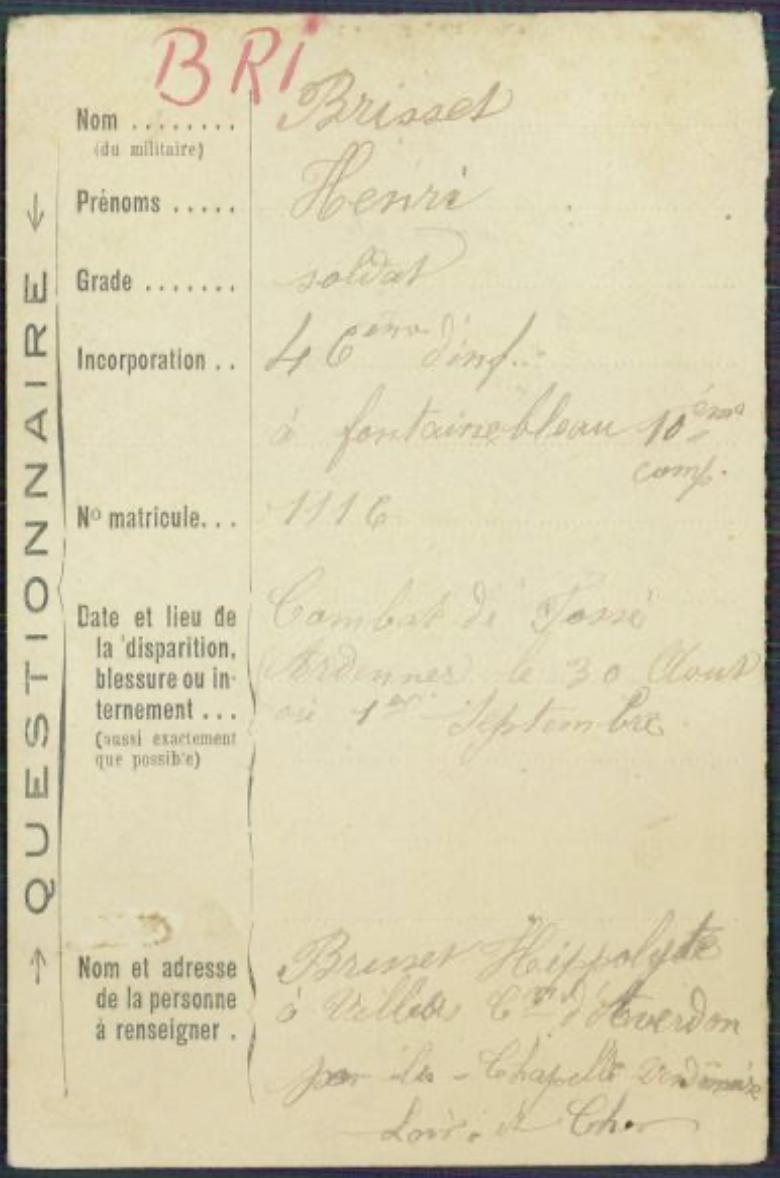 BRI
Nom ........ Brisset
(du militaire)
Prénoms ..... Henri
Grade ....... soldat
Incorporation .. 46ème d'inf..
à fontainebleau 10ème
comp.
No matricule... 1116
Date et lieu de Combat de
la disparition, Ardennes le 30 Aout
blessure ou in-
ternement ... ou 1er Septembre
(aussi exactement
que possible)
Nom et adresse Brisset Hippolyte
de la personne à Villiers Cne d'Averdon
à renseigner .
par la - Chapelle Vendomoise
Loir. et Cher
→ QUESTIONNAIRE ←